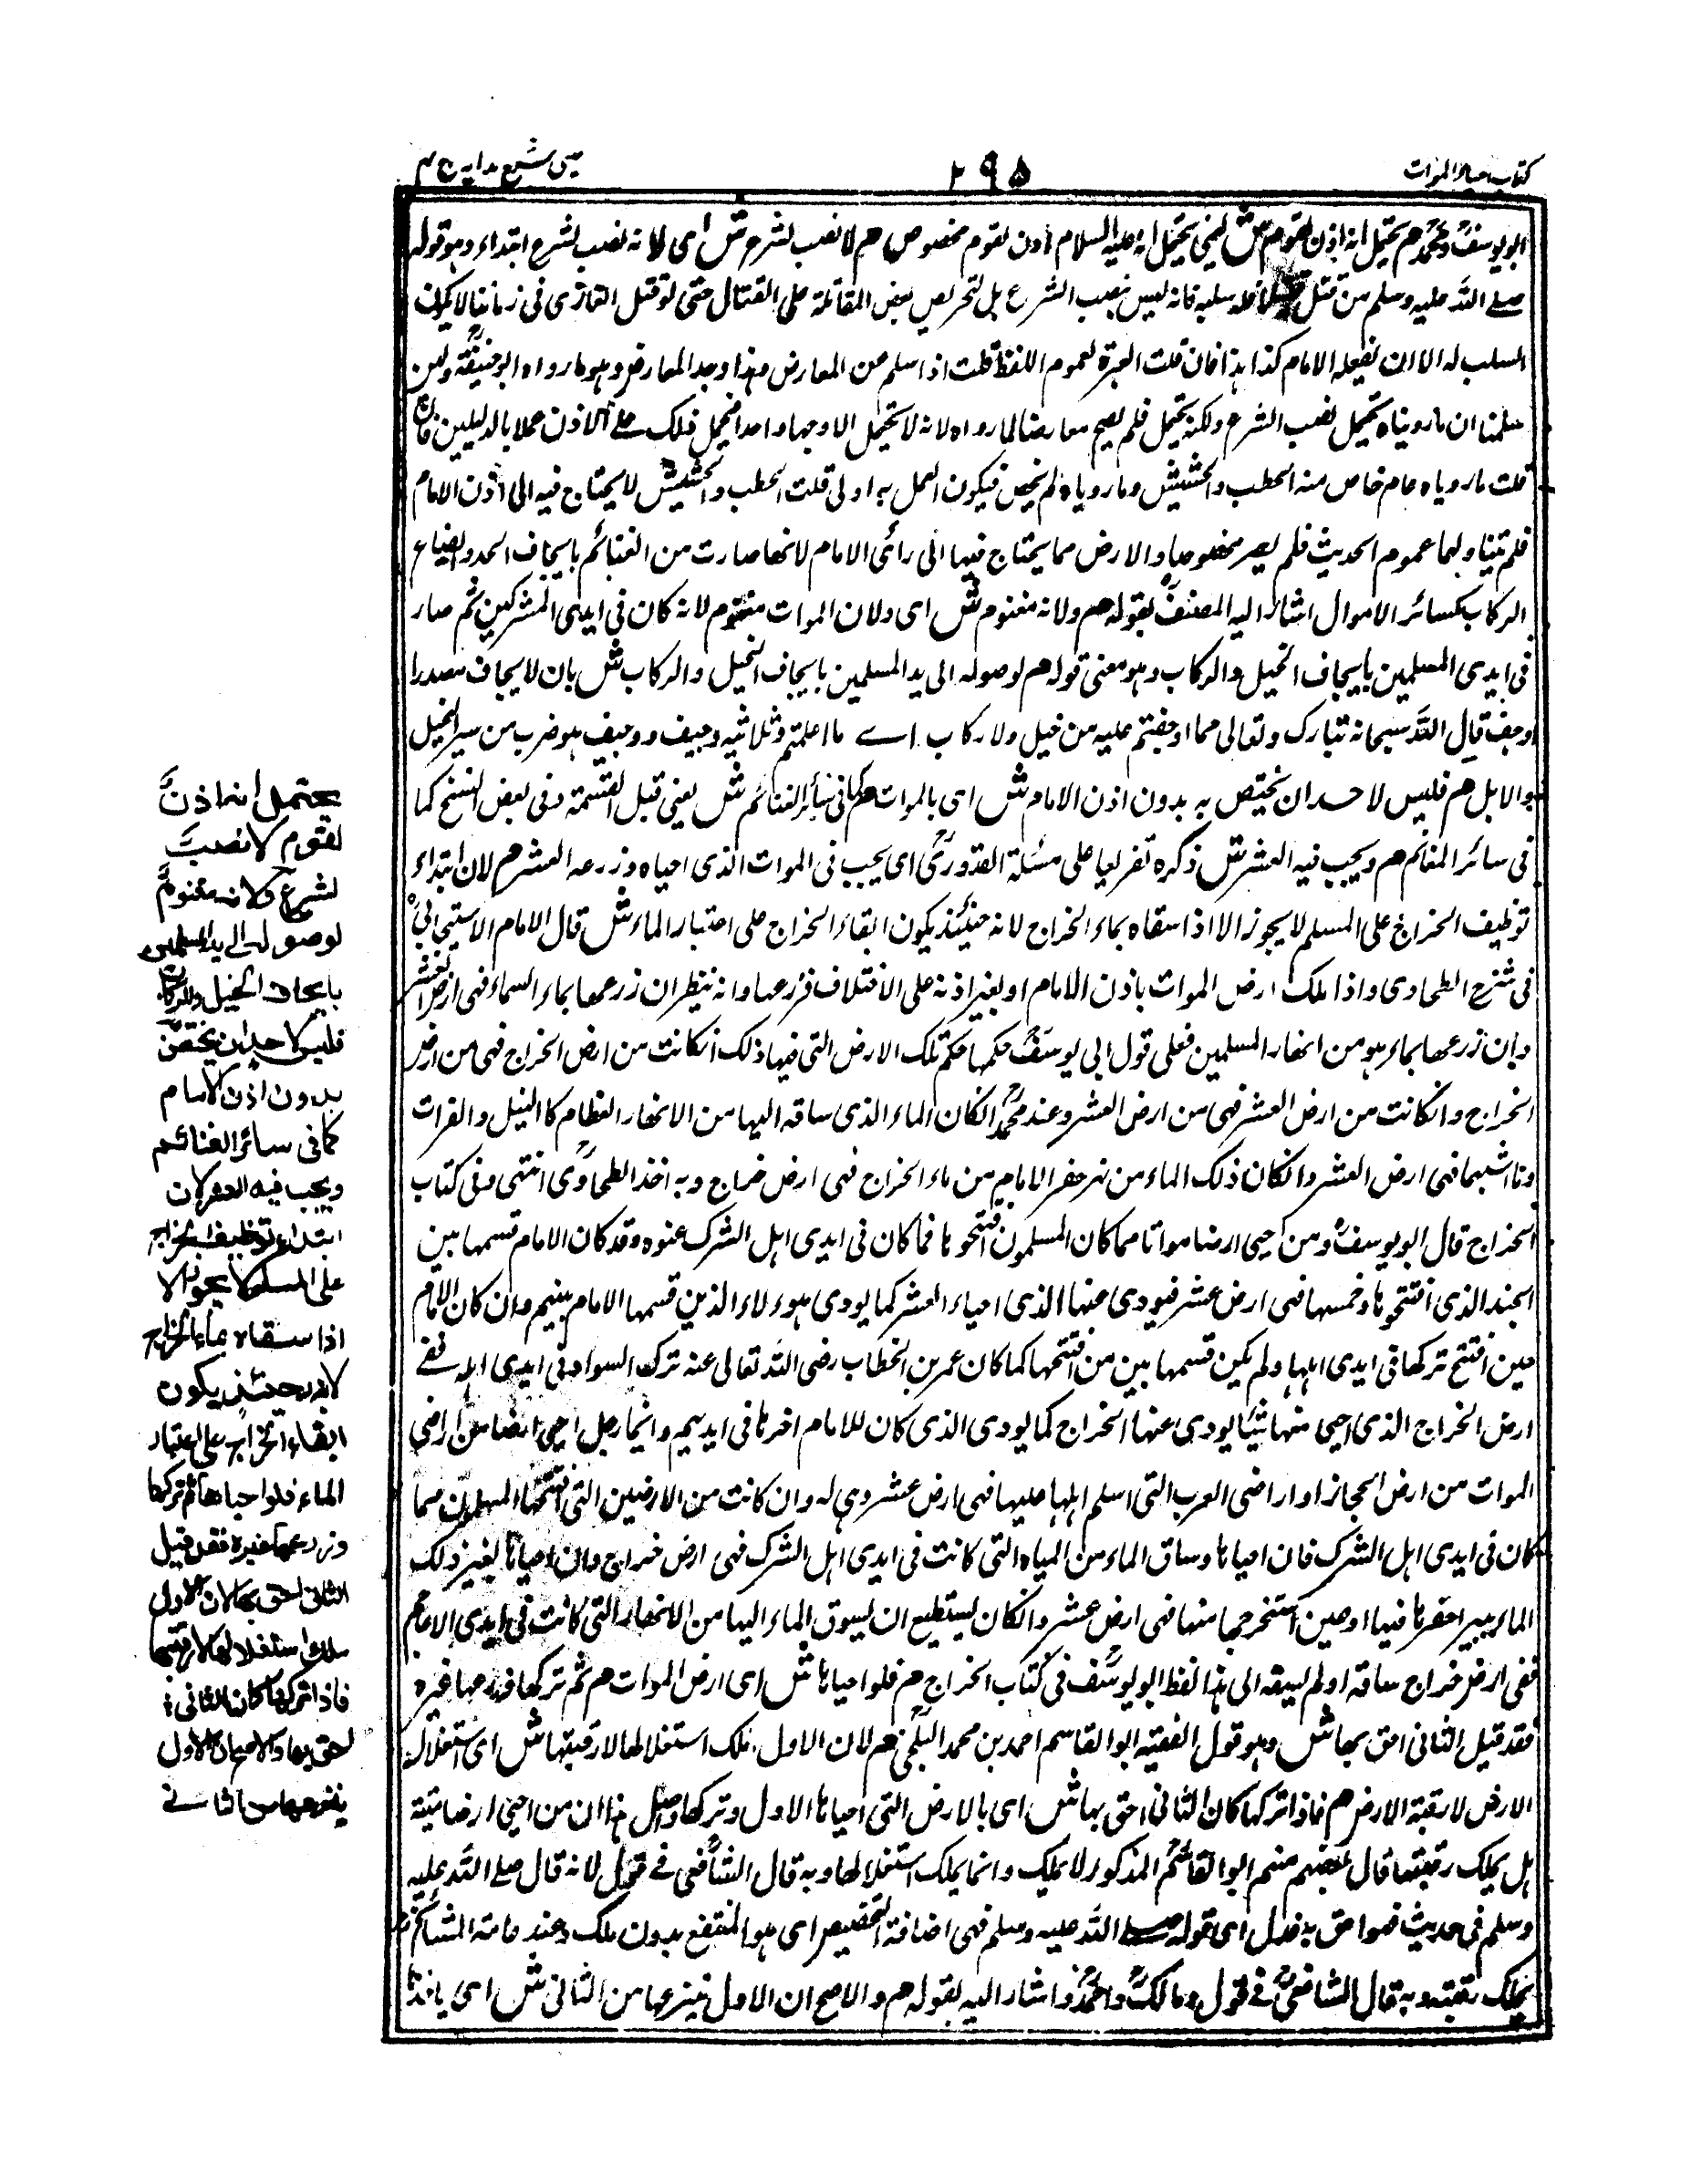 كتاب احياء الموات
٢٩٥
عينى شرح هدايه ج ٤
ابو يوسف ومحمد هم يحتمل انه اذن لقوم ش يعنى يحتمل انه عليه السلام اذن لقوم مخصوص هم لا نصب لشرع ش اى لا نه نصب لشرع ابتداء وهو قوله
صلے الله عليه وسلم من قتل قتيلا فله سلبه فانه ليس بنصب الشرع بل لتحريص بعض المقاتلة على القتال حتى لو قتل الغازى فى زماننا لا يكون
السلب له الا ان يفعله الامام كذا هذا فان قلت العبرة لعموم اللفظ قلت اذا سلم من المعارض وهذا وجد المعارض وهو ما رواه ابو حنيفة ولئن
سلمنا ان ما رويناه يحتمل نصب الشرع ولكنه يحتمل فلم يصح معارضا لما رواه لانه لا يحتمل الا وجها واحدا فيحمل ذلك على الاذن عملا بالدليلين فان
قلت ما روياه عام خاص منه الحطب والحشيش وما روياه لم يخص فيكون العمل به اولى قلت الحطب والحشيش لا يحتاج فيه الى اذن الامام
فلم يتناولهما عموم الحديث فلم يصر مخصوصا والارض مما يحتاج فيها الى رأى الامام لانها صارت من الغنائم بايجاف الخيل وايضاع
الركاب كسائر الاموال اشار اليه المصنف بقوله هم ولانه مغنوم ش اى ولان الموات مغنوم لانه كان فى ايدى المشركين ثم صار
فى ايدى المسلمين بايجاف الخيل والركاب وهو معنى قوله هم لوصوله الى يد المسلمين بايجاف الخيل والركاب ش بان لا يجاف مصدر
اوجف قال الله سبحانه تبارك وتعالى مما اوجفتم عليه من خيل ولا ركاب اے ما اعلمتم وثلاثيه وجيف ووجيف هو ضرب من سير الخيل
والابل هم فليس لاحد ان يختص به بدون اذن الامام ش اى بالموات هم كما فى سائر الغنائم ش يعنى قبل القسمة وفى بعض النسخ كما
فى سائر المغانم هم ويجب فيه العشر ش ذكره تفريعا على مسئلة القدورى اى يجب فى الموات الذى احياه وزرعه العشر هم لان ابتداء
توظيف الخراج على المسلم لا يجوز الا اذا سقاه بماء الخراج لانه حينئذ يكون ابقاء الخراج على اعتبار الماء ش قال الامام الاسبيجابى
فى شرح الطحاوى واذا ملك ارض الموات باذن الامام او بغير اذنه على الاختلاف فزرعها وانه ينظر ان زرعها بماء السماء فهى ارض العشر
وان زرعها بماء هو من انهار المسلمين فعلى قول ابى يوسف حكمها حكم تلك الارض التى فيها ذلك انكانت من ارض الخراج فهى من ارض
الخراج وانكانت من ارض العشر فهى من ارض العشر وعند محمد انكان الماء الذى ساقه اليها من الانهار العظام كالنيل والفرات
وما اشبهما فهى ارض العشر وانكان ذلك الماء من نهر حفر الامام من ماء الخراج فهى ارض خراج وبه اخذ الطحاوى انتهى وفى كتاب
الخراج قال ابو يوسف ومن احيى ارضا مواتا مما كان المسلمون افتتحوها فما كان فى ايدى اهل الشرك عنوه وقد كان الامام قسمها بين
الجند الذى افتتحوها وخمسها فهى ارض عشر فيودى عنها الذى احياه العشر كما يودى هؤلاء الذين قسمها الامام بينهم وان كان الامام
حين افتتح تركها فى ايدى اهلها ولم يكن قسمها بين من افتتحها كما كان عمر بن الخطاب رضى الله تعالى عنه ترك السواد فى ايدى اهله فهى
ارض الخراج الذى احيى منها شيئا يودى عنها الخراج كما يودى الذى كان للامام اقرها فى ايديهم وايما رجل احيى ارضا من اراضى
الموات من ارض الحجاز او اراضى العرب التى اسلم اهلها عليها فهى ارض عشر وهى له وان كانت من الارضين التى افتتحها المسلمون مما
كان فى ايدى اهل الشرك فان احياها وساق الماء من المياه التى كانت فى ايدى اهل الشرك فهى ارض خراج وان احياها بغير ذلك
الماء ببير احفرها فيها او عين استخرجها منها فهى ارض عشر وانكان يستطيع ان يسوق الماء اليها من الانهار التى كانت فى ايدى الاعاجم
فهى ارض خراج ساقه او لم يسقه الى هذا لفظ ابو يوسف فى كتاب الخراج هم فلو احياها ش اى ارض الموات هم ثم تركها فزرعها غيره
فقد قيل الثانى احق بها ش وهو قول الفقيه ابو القاسم احمد بن محمد البلخى هم لان الاول ملك استغلالها لا رقبتها ش اى استغلال
الارض لا رقبة الارض هم فاذا تركها كان الثانى احق بها ش اى بالارض التى احياها الاول وتركها واصل هذا ان من احيى ارضا ميتة
هل يملك رقبتها قال بعضهم منهم ابو القاسم المذكور لا يملك وانما يملك استغلالها وبه قال الشافعى فے قول لانه قال صلے الله عليه
وسلم فى حديث فهو احق به فدل اى قوله صلے الله عليه وسلم فهى اضافة التخصيص اى هو المنتفع بدون ملك وعند عامة المشائخ
يملك رقبته وبه قال الشافعى فے قول ومالك واحمد واشار اليه بقوله هم والاصح ان الاول ينزعها من الثانى ش اى ياخذ
يحتمل انه اذن
لقوم لا نصب
لشرع ولانه مغنوم
لوصوله الى يد المسلمين
بايجاف الخيل والركاب
فليس لاحد ان يختص
بدون اذن الامام
كما فى سائر الغنائم
ويجب فيه العشر لان
ابتداء توظيف الخراج
على المسلم لا يجوز الا
اذا سقاه بماء الخراج
لانه حينئذ يكون
ابقاء الخراج على اعتبار
الماء فلو احياها ثم تركها
وزرعها غيره فقد قيل
الثانى احق بها لان الاول
ملك استغلالها لا رقبتها
فاذا تركها كان الثانى
احق بها والاصح ان الاول
ينزعها من الثانے